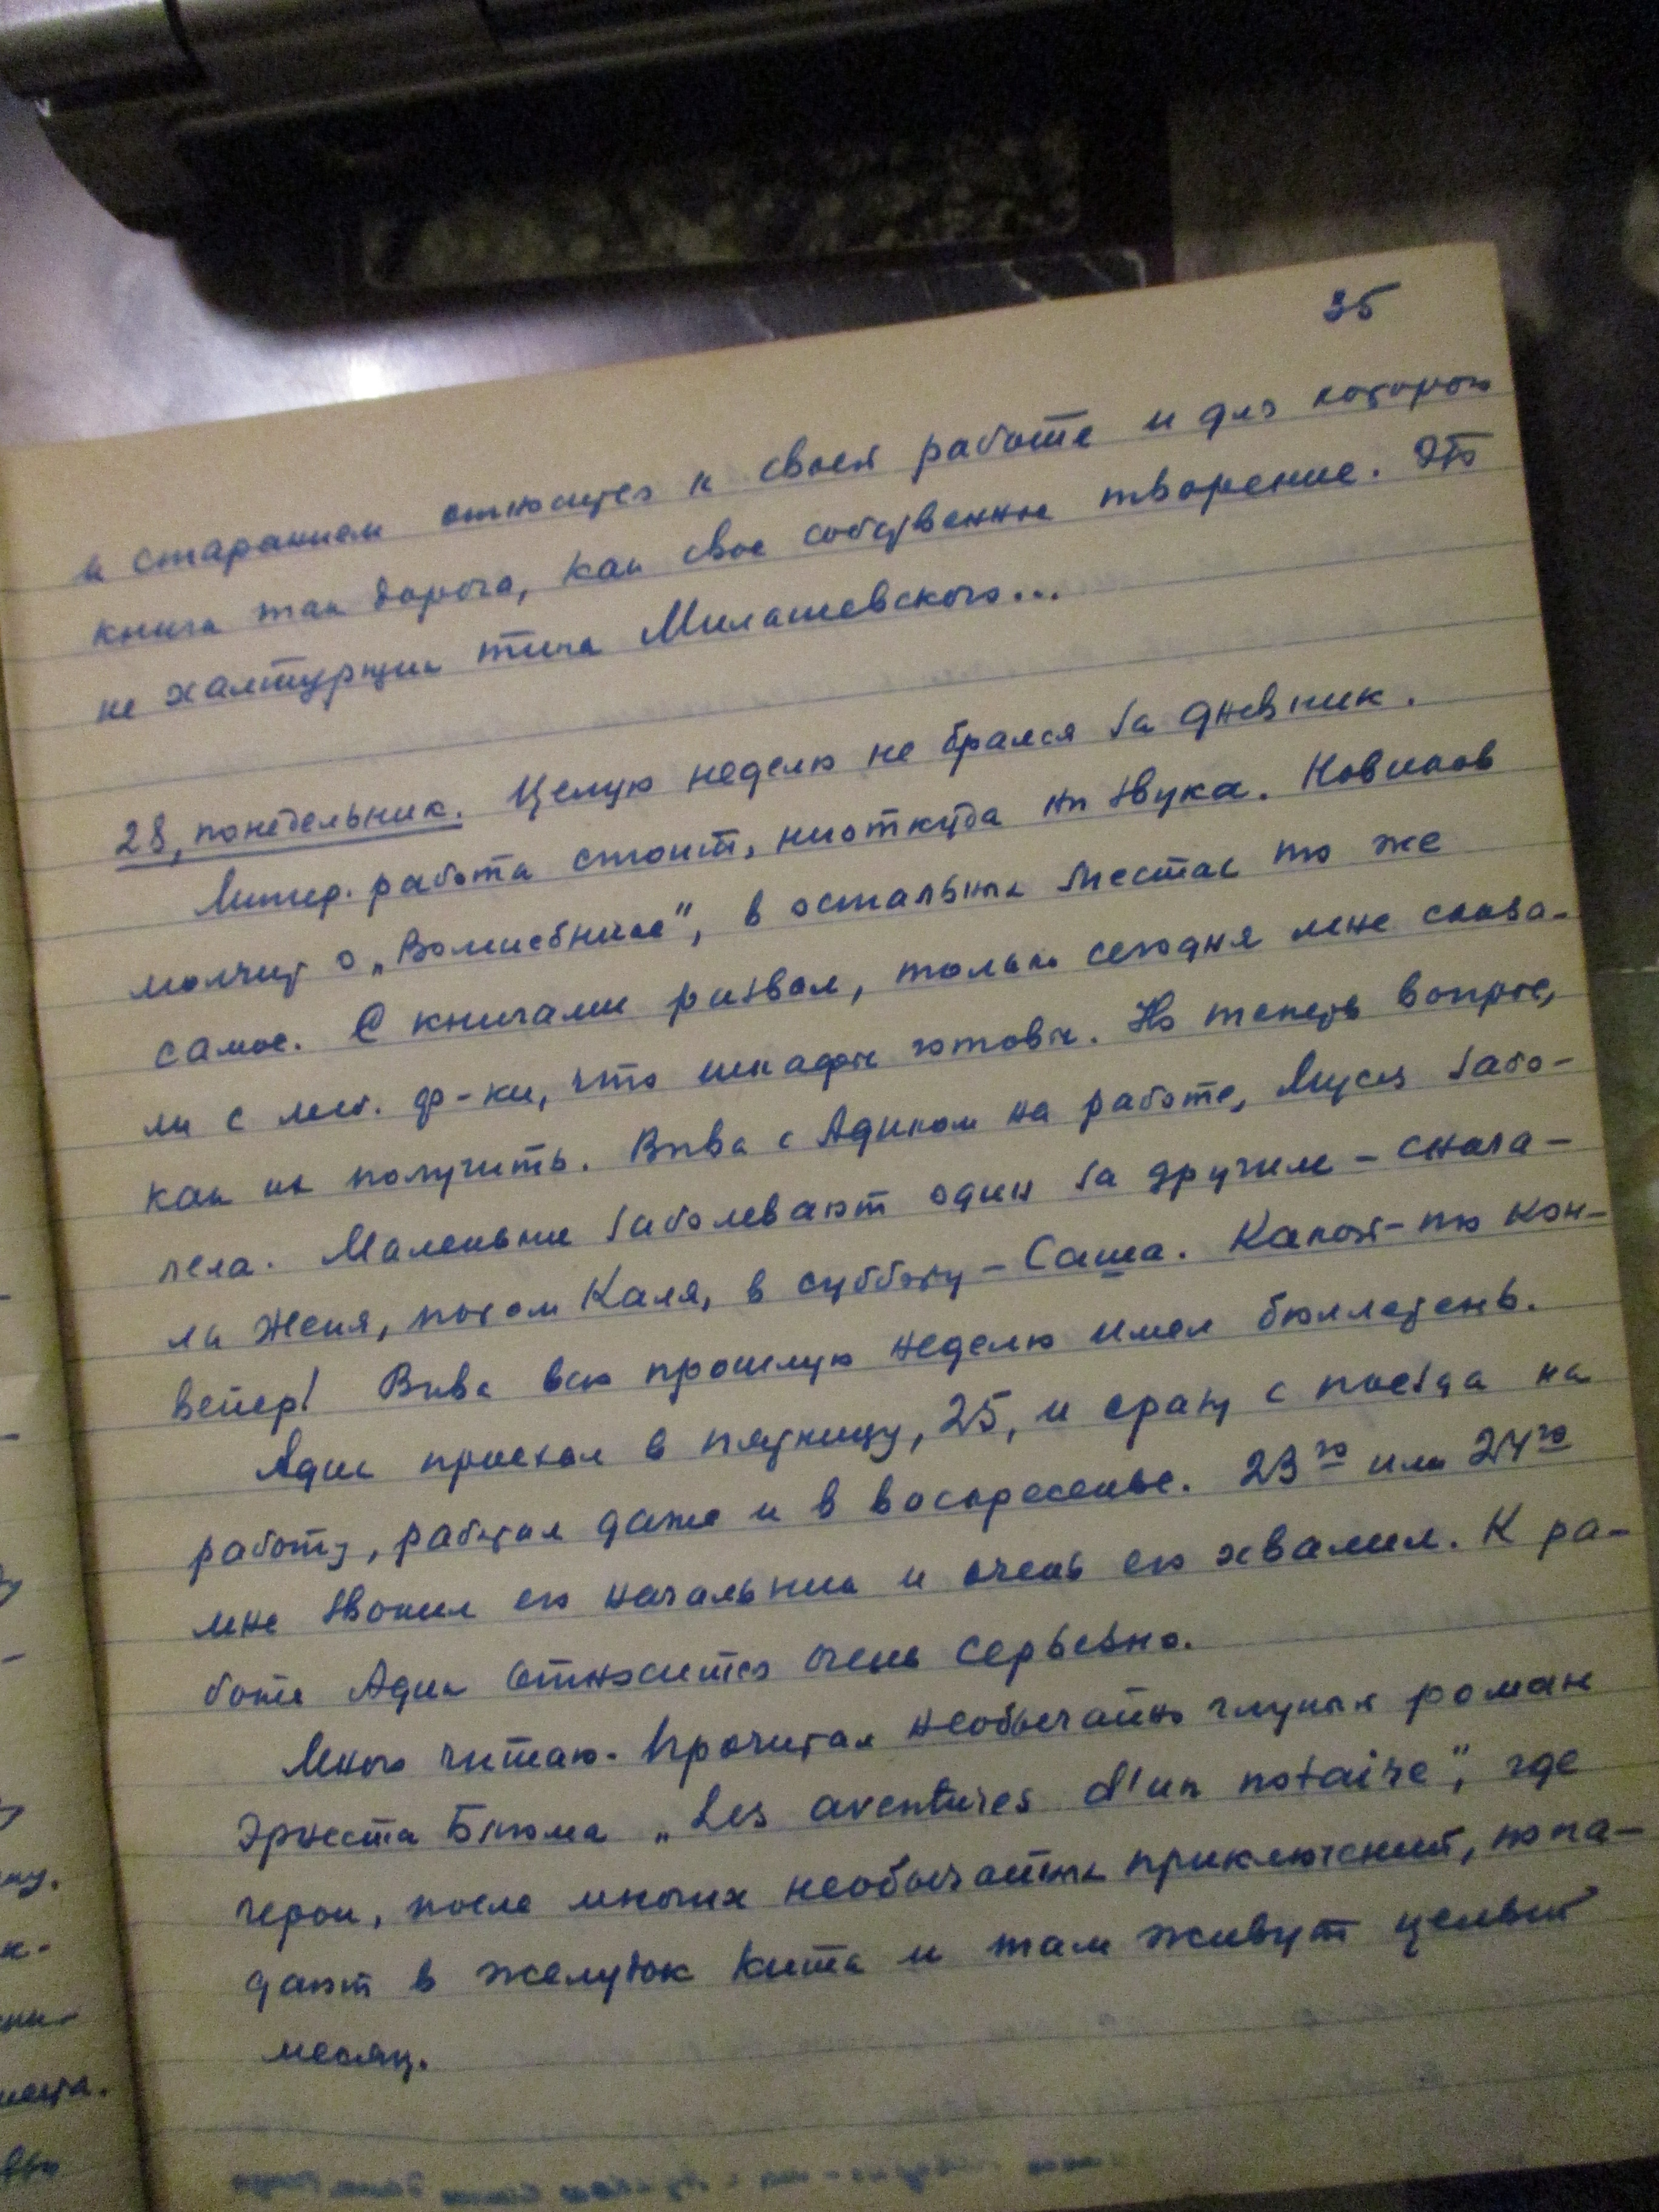 35
и старанием относится к своей работе и для которого
книга так дорога, как свое собственное творение. Это
не халтурщик типа Милашевского...
28, понедельник. Целую неделю не брался за дневник.
Литер. работа стоит, ниоткуда ни звука. Новиков
молчит о „Волшебнике", в остальных местах то же
самое. С книгами развал, только сегодня мне сказа-
ли с меб. ф-ки, что шкафы готовы. Но теперь вопрос,
как их получить. Вива с Адиком на работе, Муся забо-
лела. Маленькие заболевают один за другим - снача-
ла Женя, потом Каля, в субботу - Саша. Какой-то кон-
вейер! Вива всю прошлую неделю имел бюллетень.
Адик приехал в пятницу, 25, и сразу с поезда на
работу, работал даже и в воскресенье. 23го или 24го
мне звонил его начальник и очень его хвалил. К ра-
боте Адик относится очень серьезно.
Много читаю. Прочитал необычайно глупый роман
Эрнеста Блюма „Les aventures d'un notaire", где
герои, после многих необычайных приключений, попа-
дают в желудок кита и там живут целый
месяц.